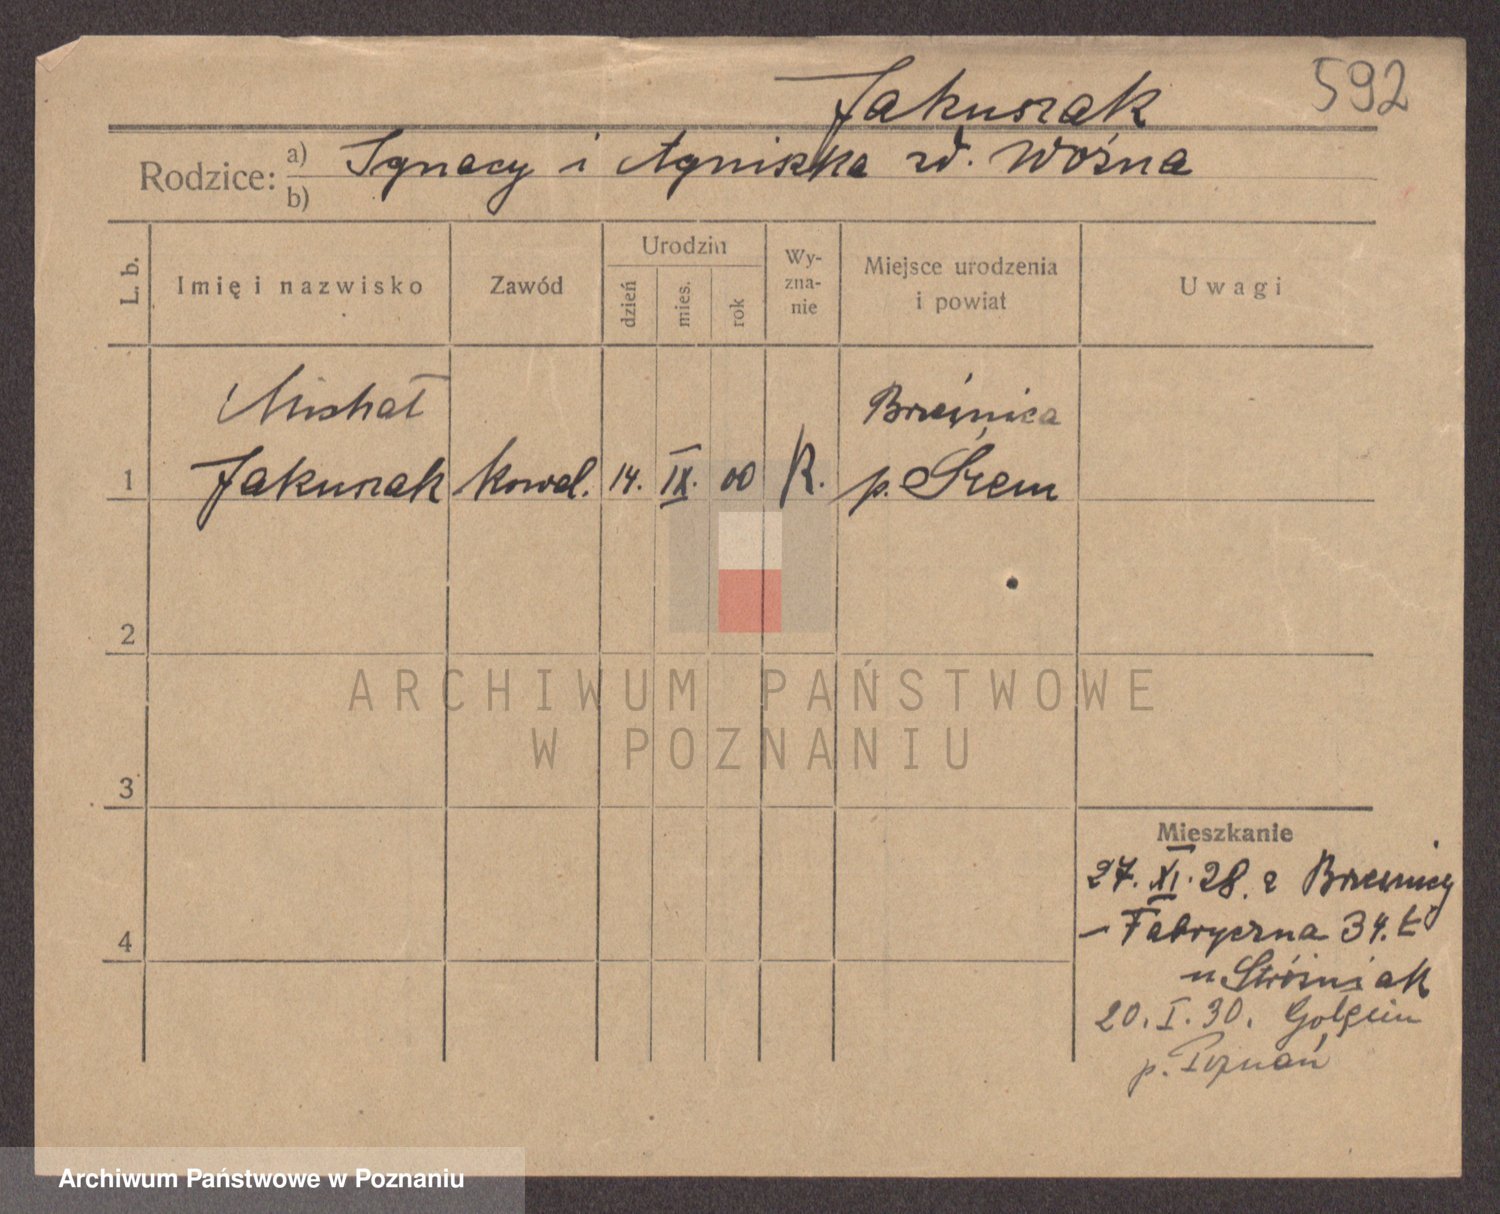 592
Jakuszak
Rodzice: a) Ignacy i Agniszka zd. Woźna
b)
L. b. Imię i nazwisko Zawód Urodzin dzień mies. rok Wy-zna-nie Miejsce urodzenia i powiat Uwagi
Michał Brzeźnica
1 Jakuszak kowal. 14. IX. 00 R. p. Śrem
2
ARCHIWUM PAŃSTWOWE
W POZNANIU
3
Mieszkanie
27. XI. 28. z Brzeźnicy
4 – Fabryczna 34.
u Stróżniak
20. I. 30. Golęcin
p. Poznań
Archiwum Państwowe w Poznaniu